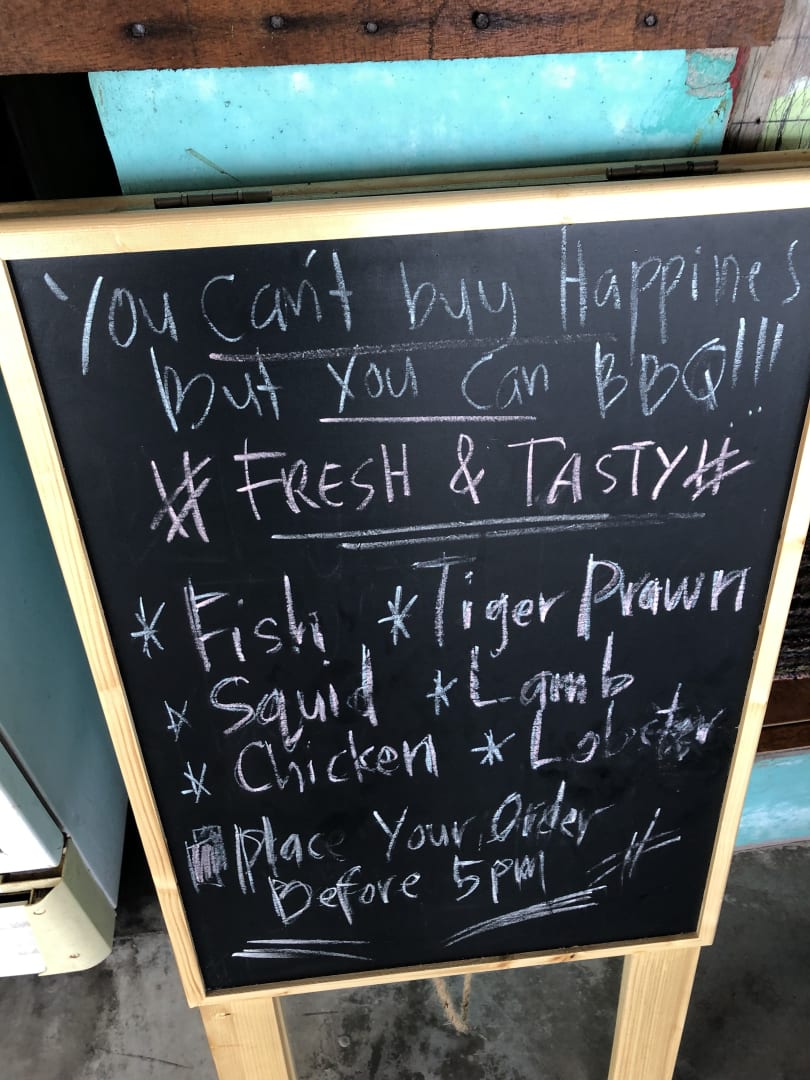 You Can't buy Happines
but You Can BBQ!!!
# FRESH & TASTY #
* Fish * Tiger Prawn
* Squid * Lamb
* Chicken * Lobster
Place Your Order
Before 5pm #